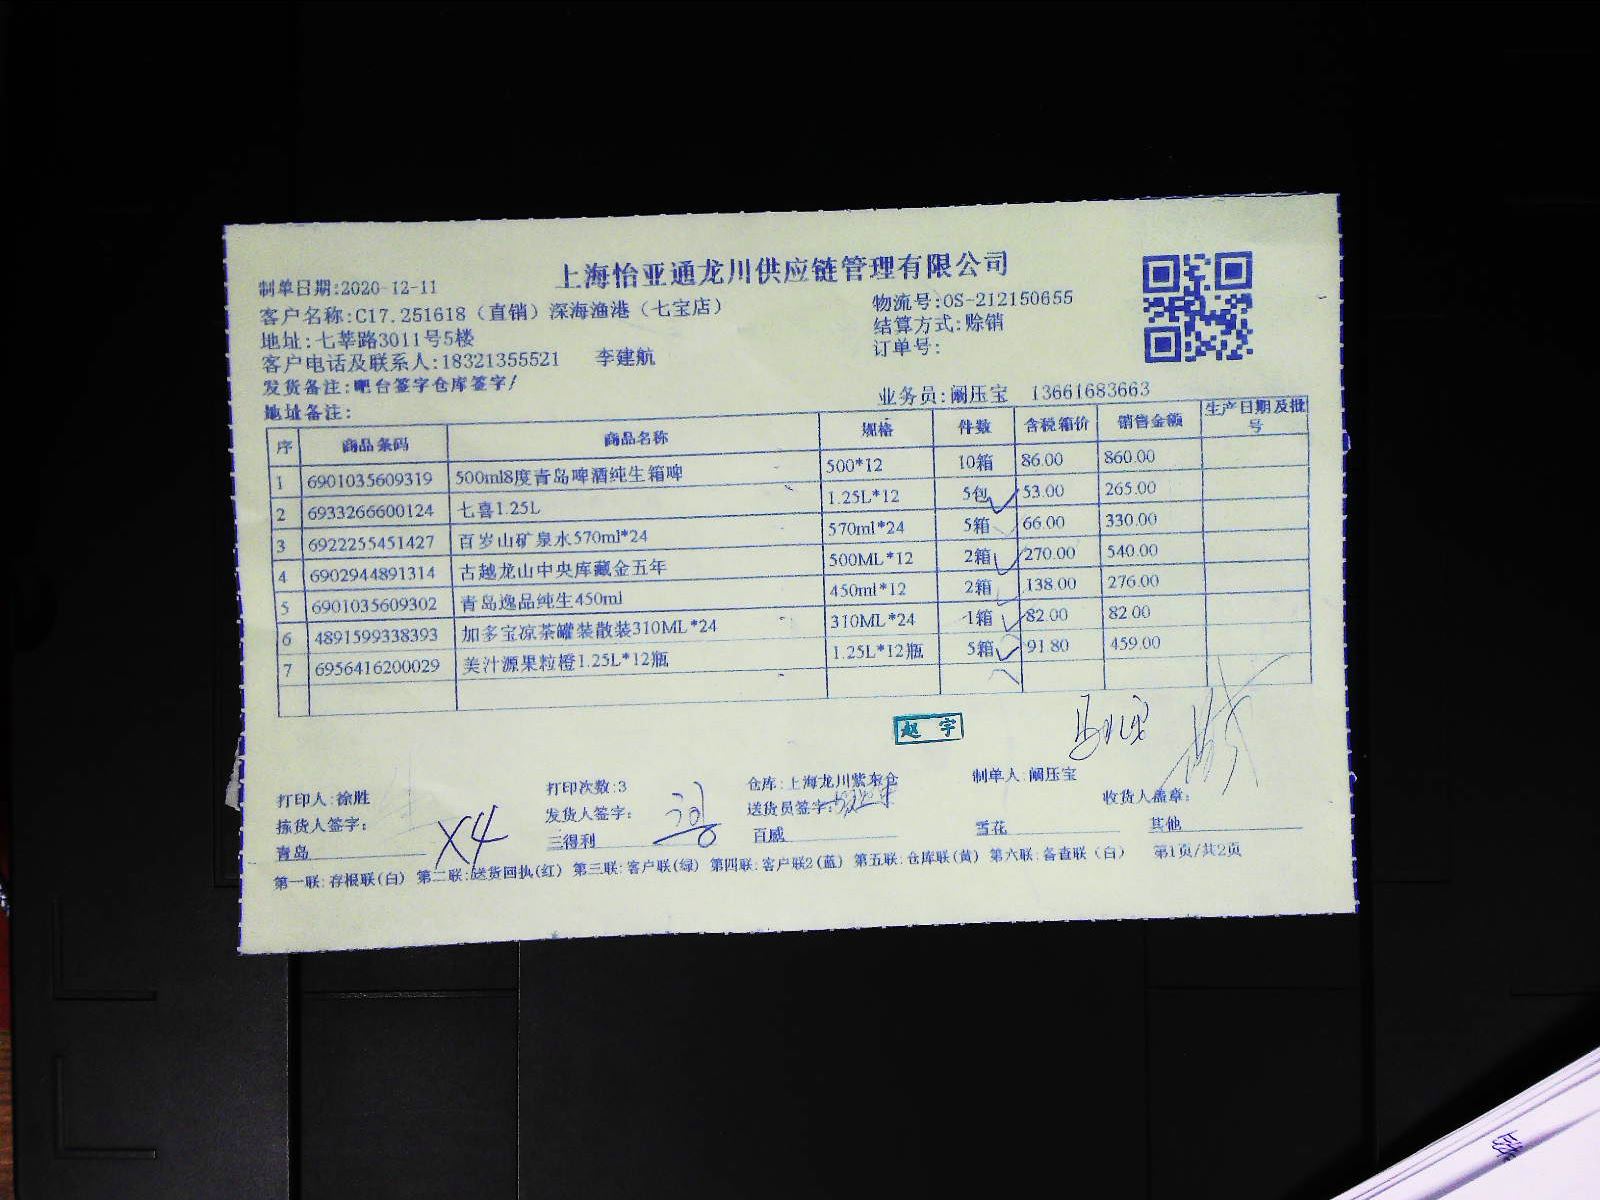 上海怡亚通龙川供应链管理有限公司
制单日期:2020-12-11
物流号:OS-212150655
客户名称:C17.251618（直销）深海渔港（七宝店）
结算方式:赊销
地址:七莘路3011号5楼
订单号:
客户电话及联系人:18321355521 李建航
发货备注:吧台签字仓库签字/
业务员:阚压宝 13661683663
地址备注:
序 商品条码 商品名称 规格 件数 含税箱价 销售金额 生产日期及批号
1 6901035609319 500ml8度青岛啤酒纯生箱啤 500*12 10箱 86.00 860.00
2 6933266600124 七喜1.25L 1.25L*12 5包 53.00 265.00
3 6922255451427 百岁山矿泉水570ml*24 570ml*24 5箱 66.00 330.00
4 6902944891314 古越龙山中央库藏金五年 500ML*12 2箱 270.00 540.00
5 6901035609302 青岛逸品纯生450ml 450ml*12 2箱 138.00 276.00
6 4891599338393 加多宝凉茶罐装散装310ML*24 310ML*24 1箱 82.00 82.00
7 6956416200029 美汁源果粒橙1.25L*12瓶 1.25L*12瓶 5箱 91.80 459.00
赵 宇
打印人:徐胜 打印次数:3 仓库:上海龙川紫东仓 制单人:阚压宝
拣货人签字: 发货人签字: 送货员签字: 收货人盖章:
青岛 X4 三得利 百威 雪花 其他
第一联:存根联(白) 第二联:送货回执(红) 第三联:客户联(绿) 第四联:客户联2(蓝) 第五联:仓库联(黄) 第六联:备查联(白) 第1页/共2页